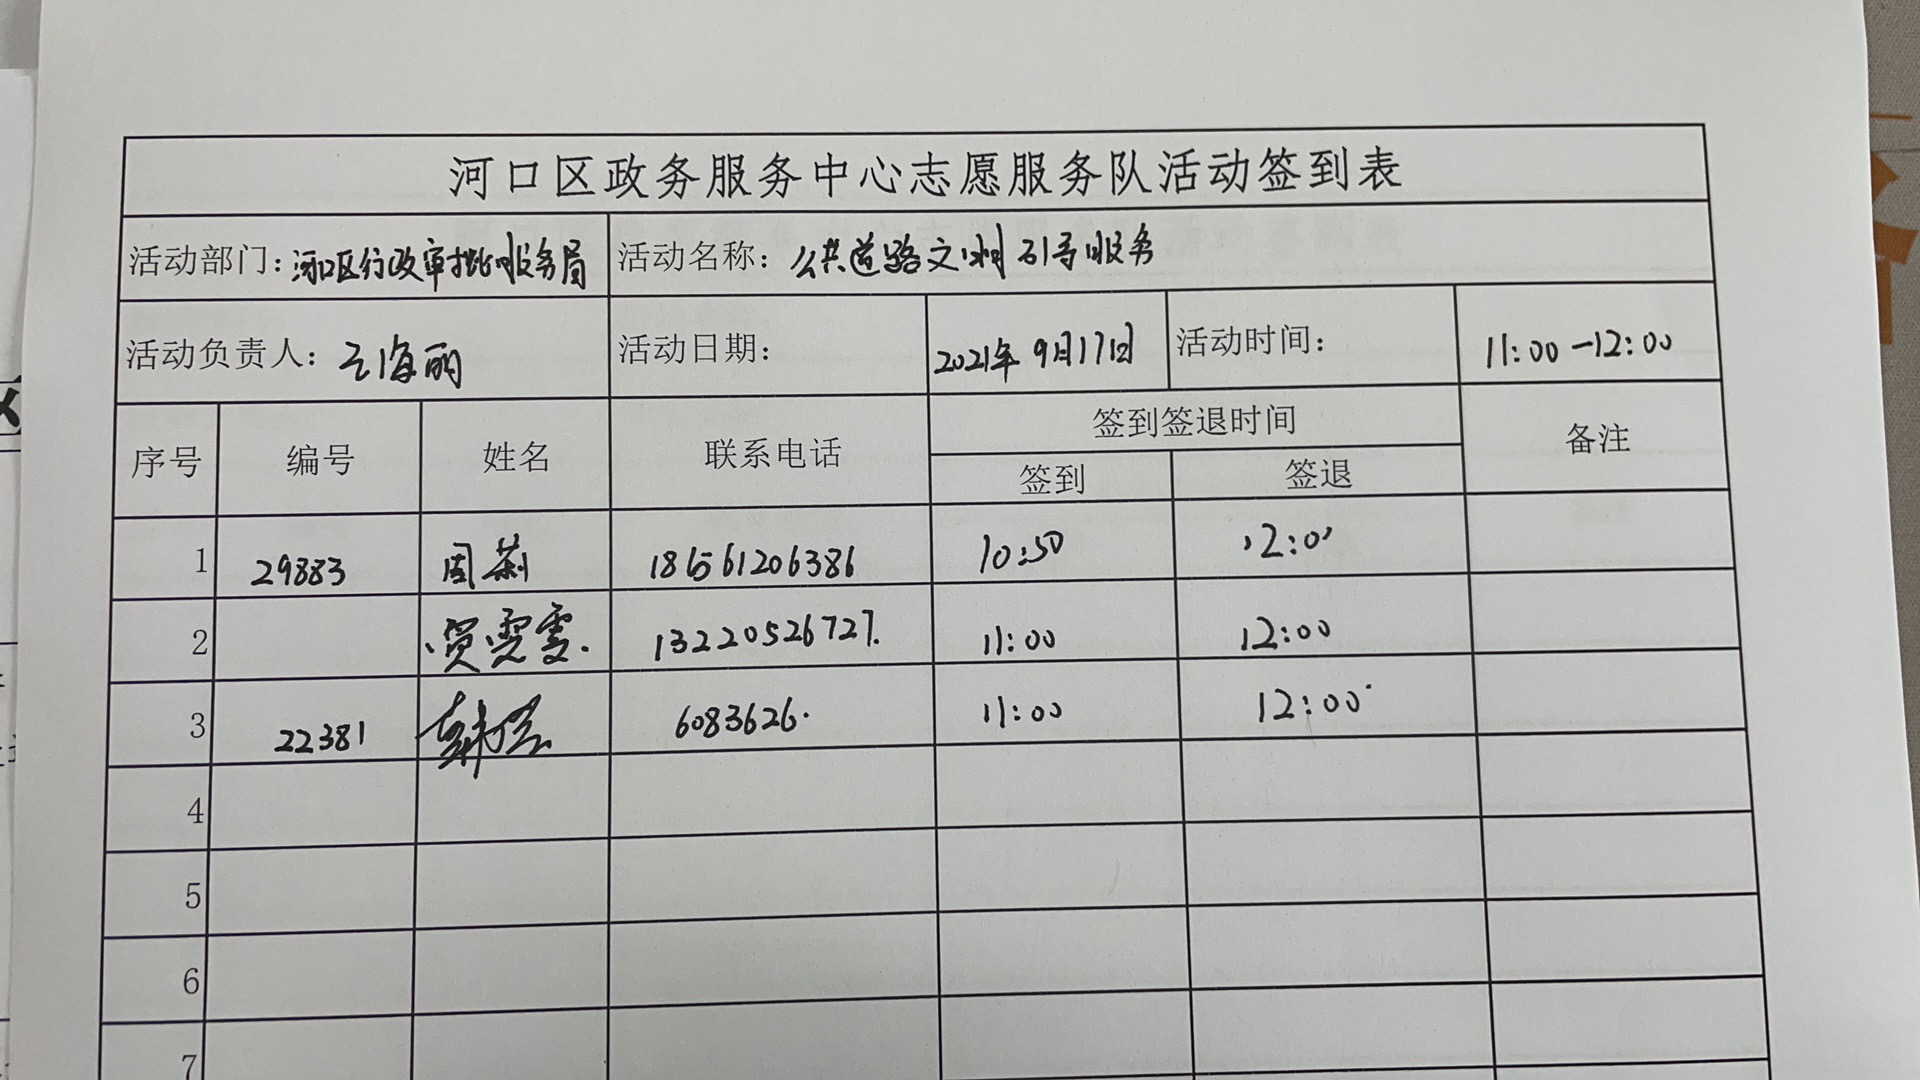 河口区政务服务中心志愿服务队活动签到表
活动部门：河口区行政审批服务局 活动名称：公共道路文明引导服务
活动负责人：王海丽 活动日期： 2021年9月17日 活动时间： 11:00-12:00
序号 编号 姓名 联系电话 签到签退时间 备注
签到 签退
1 29883 周莉 18561206386 10:50 12:00
2 贾雯雯 13220526727 11:00 12:00
3 22381 韩 6083626 11:00 12:00
4
5
6
7